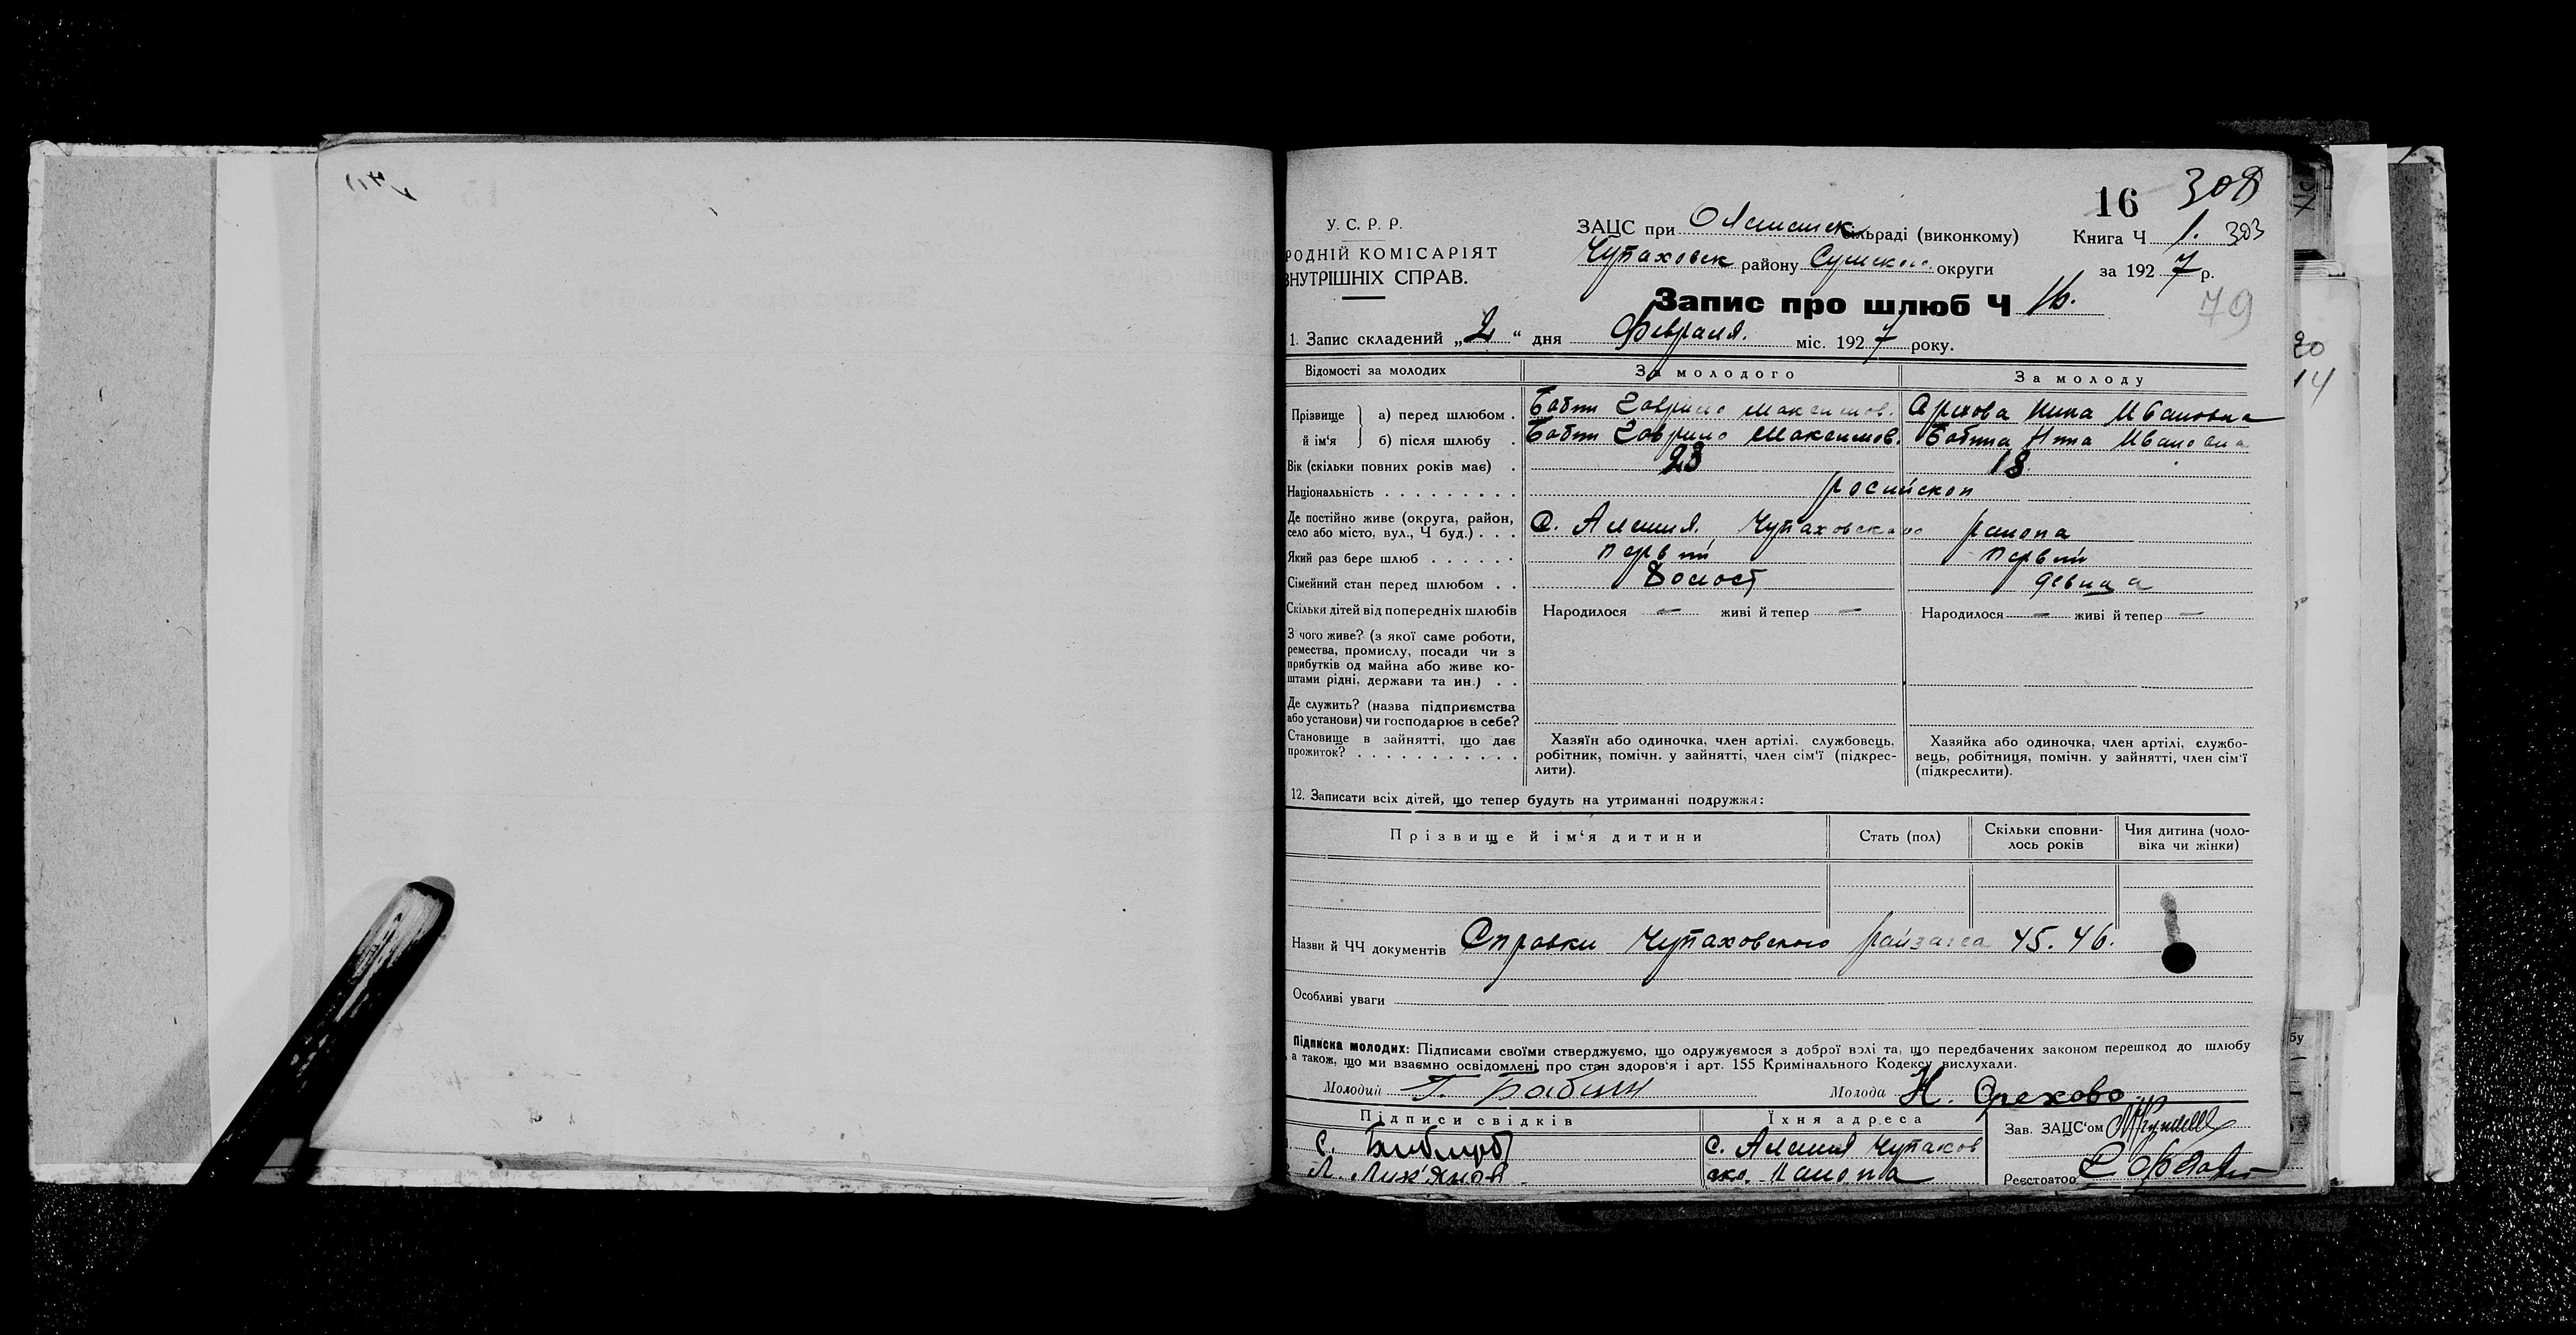 16 308
У. С. Р. Р.
РОДНІЙ КОМІСАРІЯТ
ВНУТРІШНІХ СПРАВ.
ЗАЦС при Олешнск сільраді (виконкому)
Книга Ч 1. 303
Чупаховск району Сумской округи
за 1927 р.
Запис про шлюб Ч 16.
79
1. Запис складений „2“ дня Февраля. міс. 1927 року.
Відомості за молодих За молодого За молоду
Прізвище й ім‘я а) перед шлюбом . Бабин Гаврило Максимов. Орехова Нина Ивановна
б) після шлюбу . Бабин Гаврило Максимов. Бабина Нина Ивановна
Вік (скільки повних років має) . 23 18
Національність . . . . . . . . . росийской
Де постійно живе (округа, район,
село або місто, вул., Ч буд.) . . . С. Алешня, Чупаховского района
Який раз бере шлюб . . . . . . первый первый
Сімейний стан перед шлюбом . . Холост девица
Скільки дітей від попередніх шлюбів Народилося — живі й тепер — Народилося — живі й тепер —
З чого живе? (з якої саме роботи,
ремества, промислу, посади чи з
прибутків од майна або живе ко-
штами рідні, держави та ин.) . .
Де служить? (назва підприємства
або установи) чи господарює в себе?
Становище в зайнятті, що дає
прожиток? . . . . . . . . . . .
Хазяїн або одиночка, член артілі, службовець,
робітник, помічн. у зайнятті, член сім‘ї (підкрес-
лити).
Хазяйка або одиночка, член артілі, службо-
вець, робітниця, помічн. у зайнятті, член сім‘ї
(підкреслити).
12. Записати всіх дітей, що тепер будуть на утриманні подружжя:
Прізвище й ім‘я дитини Стать (пол) Скільки сповни-
лось років Чия дитина (чоло-
віка чи жінки)
Назви й ЧЧ документів Справки Чупаховского райзагса 45. 46.
Особливі уваги
Підписка молодих: Підписами своїми стверджуємо, що одружуємося з доброї волі та, що передбачених законом перешкод до шлюбу
а також, що ми взаємно освідомлені про стан здоров‘я і арт. 155 Кримінального Кодексу вислухали.
Молодий Г. Бабин Молода Н. Орехова
Підписи свідків Їхня адреса
Зав. ЗАЦС‘ом
С. С. Алешня Чупахов
Л. Лук‘янов ско. района
Реєстратор
20
14